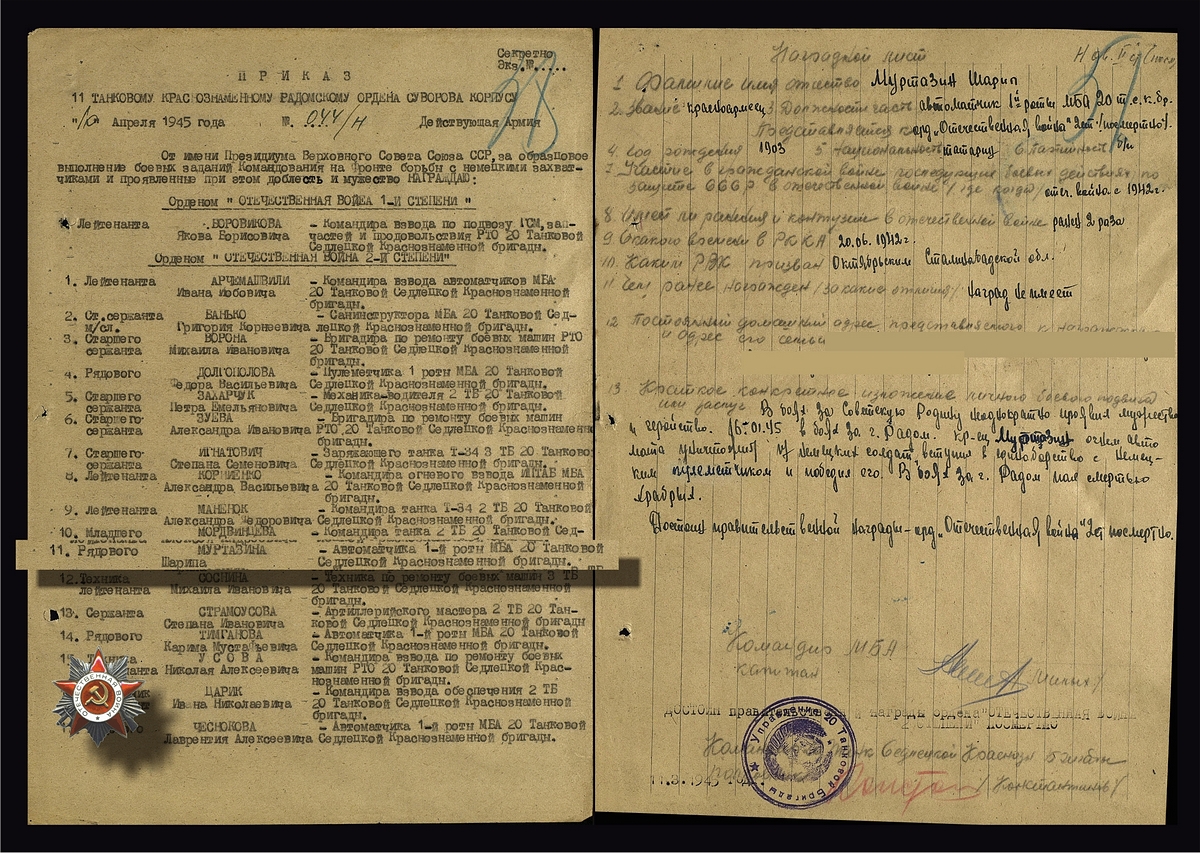 Секретно
Экз.№.....
ПРИКАЗ
11 ТАНКОВОМУ КРАСНОЗНАМЕННОМУ РАДОМСКОМУ ОРДЕНА СУВОРОВА КОРПУСУ
"10" Апреля 1945 года № 044/н Действующая Армия
От имени Президиума Верховного Совета Союза ССР, за образцовое
выполнение боевых заданий Командования на Фронте борьбы с немецкими захват-
чиками и проявленные при этом доблесть и мужество НАГРАЖДАЮ:
Орденом " ОТЕЧЕСТВЕННАЯ ВОЙНА 1-Й СТЕПЕНИ "
Лейтенанта БОРОВИКОВА – Командира взвода по подвозу ГСМ, зап-
Якова Борисовича частей и продовольствия РТО 20 Танковой
Седлецкой Краснознаменной бригады.
Орденом " ОТЕЧЕСТВЕННАЯ ВОЙНА 2-Й СТЕПЕНИ"
1. Лейтенанта АРЧЕМАШВИЛИ – Командира взвода автоматчиков МБА
Ивана 20 Танковой Седлецкой Краснознаменной
бригады.
2. Ст.сержанта ВАНЬКО – Санинструктора МБА 20 Танковой Сед-
м/сл. Григория Корнеевича лецкой Краснознаменной бригады.
3. Старшего ВОРОНА – Бригадира по ремонту боевых машин РТО
сержанта Михаила Ивановича 20 Танковой Седлецкой Краснознаменной
бригады.
4. Рядового ДОЛГОПОЛОВА – Пулеметчика 1 роты МБА 20 Танковой
Федора Васильевича Седлецкой Краснознаменной бригады.
5. Старшего ЗАХАРЧУК – Механика-водителя 2 ТБ 20 Танковой
сержанта Петра Емельяновича Седлецкой Краснознаменной бригады.
6. Старшего ЗУЕВА – Бригадира по ремонту боевых машин
сержанта Александра Ивановича РТО 20 Танковой Седлецкой Краснознаменн
бригады.
7. Старшего ИГНАТОВИЧ – Заряжающего танка Т-34 3 ТБ 20 Танково
сержанта Степана Семеновича Седлецкой Краснознаменной бригады.
8. Лейтенанта КОРНИЕНКО – Командира огневого взвода ИПТАБ МБА
Александра Васильевича 20 Танковой Седлецкой Краснознаменной
бригады.
9. Лейтенанта МАНЕНОК – Командира танка Т-34 2 ТБ 20 Танковой
Александра Федоровича Седлецкой Краснознаменной бригады.
10. Младшего МОРДВИНЦЕВА – Командира танка 2 ТБ 20 Танковой Сед-
11. Рядового МУРТАЗИНА – Автоматчика 1-й роты МБА 20 Танковой
Шарипа Седлецкой Краснознаменной бригады.
12. Техника СОСНИНА – Техника по ремонту боевых машин 3 ТБ
лейтенанта Михаила Ивановича 20 Танковой Седлецкой Краснознаменной
бригады.
13. Сержанта СТРАМОУСОВА – Артиллерийского мастера 2 ТБ 20 Тан-
Степана Ивановича ковой Седлецкой Краснознаменной бригады
14. Рядового ТИМГАНОВА – Автоматчика 1-й роты МБА 20 Танковой
Карима Мустафьевича Седлецкой Краснознаменной бригады.
УСОВА – Командира взвода по ремонту боевых
Николая Алексеевича машин РТО 20 Танковой Седлецкой Крас-
нознаменной бригады.
ЦАРИК – Командира взвода обеспечения 2 ТБ
Ивана Николаевича 20 Танковой Седлецкой Краснознаменной
бригады.
ЧЕСНОКОВА – Автоматчика 1-й роты МБА 20 Танковой
Лаврентия Алексеевича Седлецкой Краснознаменной бригады.
ОТЕЧЕСТВЕННАЯ ВОЙНА
Наградной лист
1 Фамилие имя отчество Муртазин Шарип
2. Звание красноармеец 3. Должность часть автоматчик 1й роты МБА 20 т.с.к.бр.
Представляется к орд. "Отечественная война" 2ст. /посмертно/.
4. Год рождения 1903 5 Национальность татарин 6 Партийность б/п
7 Участие в гражданской войне последующих боевых действиях по
защите СССР в отечественной войне /где когда/ отеч. война с 1942 г.
8. Имеет ли ранения и контузии в отечественной войне ранен 2 раза
9. С какого времени в РККА 20.06.1942 г.
10. Каким РВК призван Октябрьским Сталинабадской обл.
11. Чем ранее награжден /за какие отличия/ Наград не имеет
12 Постоянный домашний адрес представляемого к награждению
и адрес его семьи
13. Краткое конкретное изложение личного боевого подвига
или заслуг В боях за Советскую Родину неоднократно проявил мужество
и геройство. 16.01.45 в боях за г. Радом. кр-ец Муртазин огнем авто
мата уничтожил немецких солдат вступил в единоборство с немец-
ким пулеметчиком и победил его. В боях за г. Радом пал смертью
храбрых.
Достоин правительственной награды – орд. "Отечественная война" 2ст посмертно.
Командир МБА
капитан /Миных/
ДОСТОИН прав награды ордена "ОТЕЧЕСТВЕННАЯ ВОЙНА
ПОСМЕРТНО
Седлецкой Краснозн бригады
11.3.1945 год /Константинов/
Управление 20 Танковой Бригады